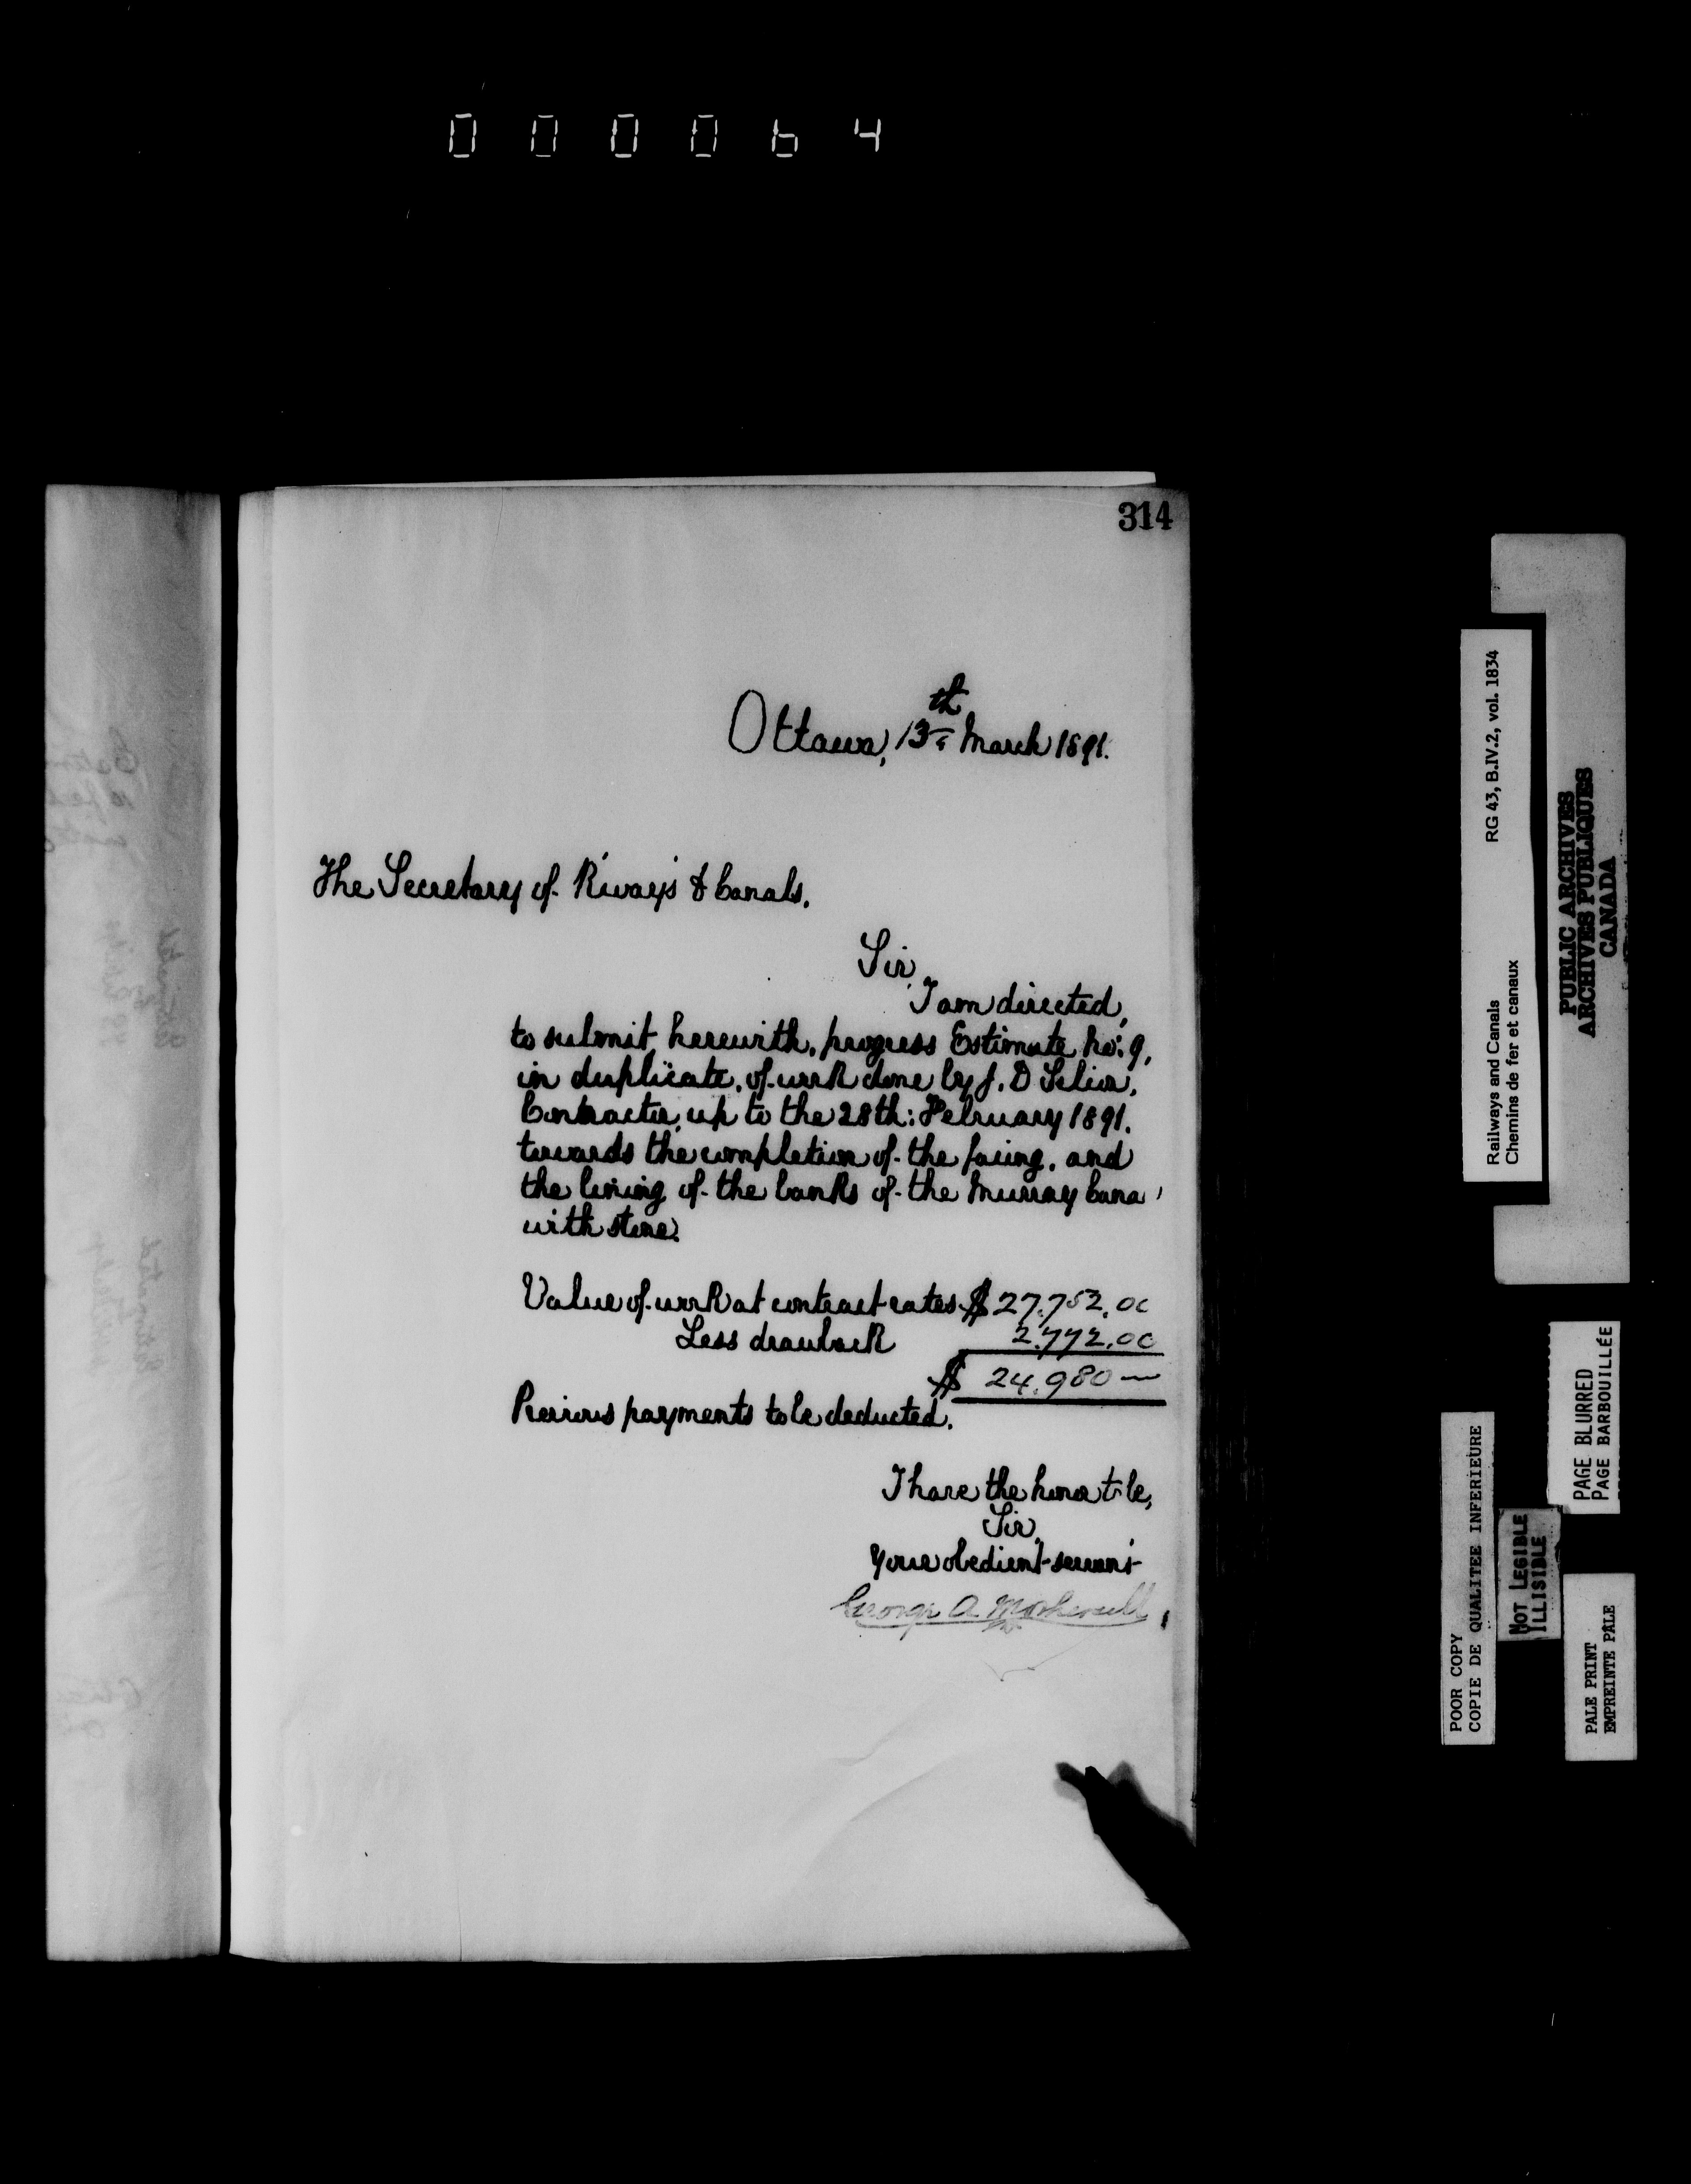 000064
314
Ottawa, 13th March 1891.
The Secretary of R'ways & Canals.
Sir,
I am directed,
to submit herewith, progress Estimate No: 9,
in duplicate, of work done by J. D Silcox,
Contractor, up to the 28th: February 1891.
towards the completion of the facing, and
the lining of the banks of the Murray Cana
with stone.
Value of work at contract rates $ 27.752.00
Less drawback 2.772.00
$ 24.980 —
Previous payments to be deducted.
I have the honor to be,
Sir,
Your obedient servant
George A Mothersill
Railways and Canals RG 43, B.IV.2, vol. 1834
Chemins de fer et canaux
PUBLIC ARCHIVES
ARCHIVES PUBLIQUES
CANADA
PAGE BLURRED
PAGE BARBOUILLÉE
POOR COPY
COPIE DE QUALITEE INFERIEURE
NOT LEGIBLE
ILLISIBLE
PALE PRINT
EMPREINTE PÂLE